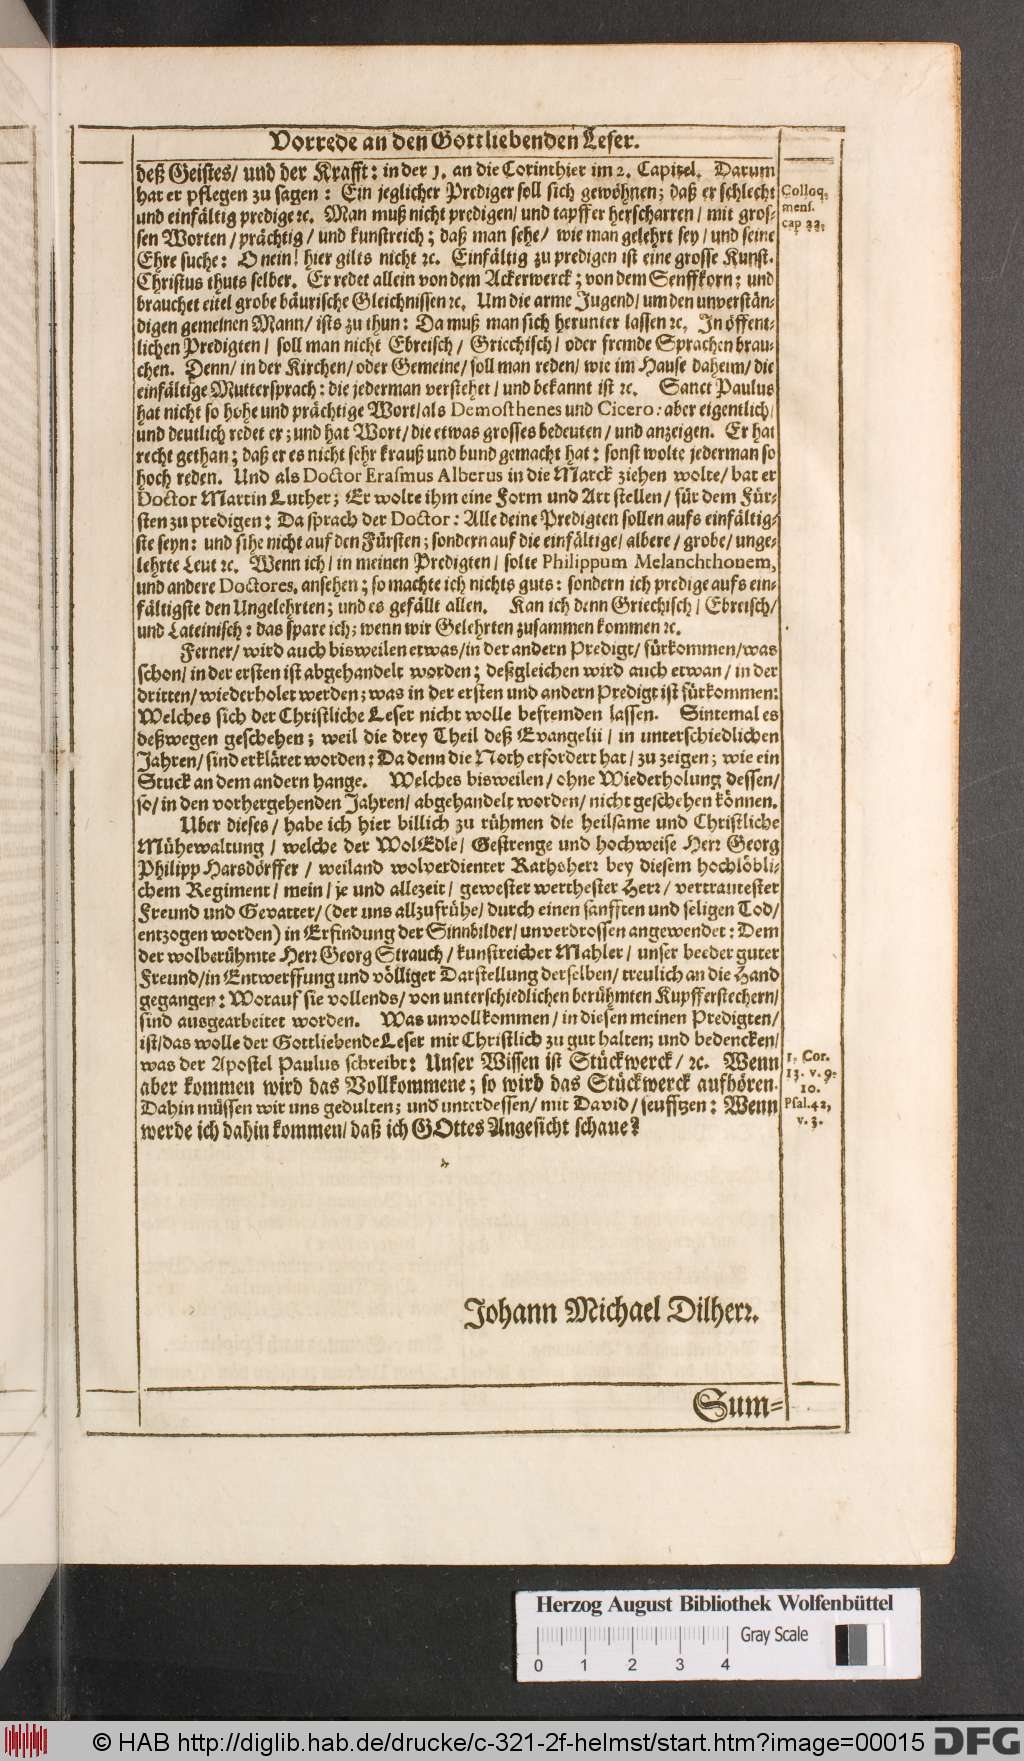 Vorrede an den Gottliebenden Leser.
deß Geistes/ und der Krafft: in der 1. an die Corinthier im 2. Capitel. Darum
hat er pflegen zu sagen: Ein jeglicher Prediger soll sich gewöhnen; daß er schlecht
und einfältig predige ꝛc. Man muß nicht predigen/ und tapffer herscharren/ mit gros-
sen Worten/ prächtig/ und kunstreich; daß man sehe/ wie man gelehrt sey/ und seine
Ehre suche: O nein! hier gilts nicht ꝛc. Einfältig zu predigen ist eine grosse Kunst.
Christus thuts selber. Er redet allein von dem Ackerwerck; von dem Senffkorn; und
brauchet eitel grobe bäurische Gleichnissen ꝛc. Um die arme Jugend/ um den unverstän-
digen gemeinen Mann/ ists zu thun: Da muß man sich herunter lassen ꝛc. In öffent-
lichen Predigten/ soll man nicht Ebreisch/ Griechisch/ oder fremde Sprachen brau-
chen. Denn/ in der Kirchen/ oder Gemeine/ soll man reden/ wie im Hause daheim/ die
einfältige Muttersprach: die jederman verstehet/ und bekannt ist ꝛc. Sanct Paulus
hat nicht so hohe und prächtige Wort/ als Demosthenes und Cicero: aber eigentlich/
und deutlich redet er; und hat Wort/ die etwas grosses bedeuten/ und anzeigen. Er hat
recht gethan; daß er es nicht sehr krauß und bund gemacht hat: sonst wolte jederman so
hoch reden. Und als Doctor Erasmus Alberus in die Marck ziehen wolte/ bat er
Doctor Martin Luther; Er wolte ihm eine Form und Art stellen/ für dem Für-
sten zu predigen: Da sprach der Doctor: Alle deine Predigten sollen aufs einfältig-
ste seyn: und sihe nicht auf den Fürsten; sondern auf die einfältige/ albere/ grobe/ unge-
lehrte Leut ꝛc. Wenn ich/ in meinen Predigten/ solte Philippum Melanchthonem,
und andere Doctores, ansehen; so machte ich nichts guts: sondern ich predige aufs ein-
fältigste den Ungelehrten; und es gefällt allen. Kan ich denn Griechisch/ Ebreisch/
und Lateinisch: das spare ich; wenn wir Gelehrten zusammen kommen ꝛc.
Ferner/ wird auch bisweilen etwas/ in der andern Predigt/ fürkommen/ was
schon/ in der ersten ist abgehandelt worden; deßgleichen wird auch etwan/ in der
dritten/ wiederholet werden; was in der ersten und andern Predigt ist fürkommen:
Welches sich der Christliche Leser nicht wolle befremden lassen. Sintemal es
deßwegen geschehen; weil die drey Theil deß Evangelii/ in unterschiedlichen
Jahren/ sind erkläret worden: Da denn die Noth erfordert hat/ zu zeigen; wie ein
Stuck an dem andern hange. Welches bisweilen/ ohne Wiederholung dessen/
so/ in den vorhergehenden Jahren/ abgehandelt worden/ nicht geschehen können.
Uber dieses/ habe ich hier billich zu rühmen die heilsame und Christliche
Mühewaltung/ welche der WolEdle/ Gestrenge und hochweise Herr Georg
Philipp Harsdörffer/ weiland wolverdienter Rathsherr bey diesem hochlöbli-
chem Regiment/ mein/ je und allezeit/ gewester werthester Herr/ vertrautester
Freund und Gevatter/ (der uns allzufrühe/ durch einen sanfften und seligen Tod/
entzogen worden) in Erfindung der Sinnbilder/ unverdrossen angewendet: Dem
der wolberühmte Herr Georg Strauch/ kunstreicher Mahler/ unser beeder guter
Freund/ in Entwerffung und völliger Darstellung derselben/ treulich an die Hand
gegangen: Worauf sie vollends/ von unterschiedlichen berühmten Kupfferstechern/
sind ausgearbeitet worden. Was unvollkommen/ in diesen meinen Predigten/
ist/ das wolle der Gottliebende Leser mir Christlich zu gut halten; und bedencken/
was der Apostel Paulus schreibt: Unser Wissen ist Stückwerck/ ꝛc. Wenn
aber kommen wird das Vollkommene; so wird das Stückwerck aufhören.
Dahin müssen wir uns gedulten; und unterdessen/ mit David/ seufftzen: Wenn
werde ich dahin kommen/ daß ich GOttes Angesicht schaue?
Colloq.
mens.
cap 22.
1. Cor.
13. v. 9.
10.
Psal. 42,
v. 3.
Johann Michael Dilherr.
Sum-
Herzog August Bibliothek Wolfenbüttel
Gray Scale
0 1 2 3 4
© HAB http://diglib.hab.de/drucke/c-321-2f-helmst/start.htm?image=00015
DFG